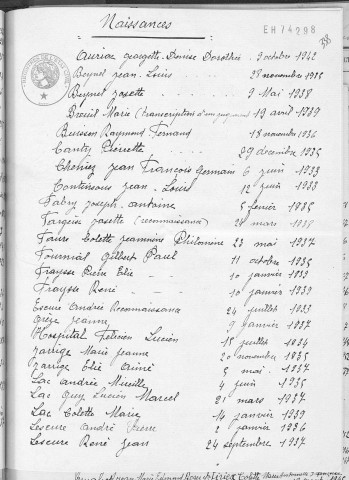 EH 74298
Naissances
Auriac Georgette Denise Dorothée 9 octobre 1942
Beynel Jean Louis 28 novembre 1935
Beynel Josette 9 Mai 1938
Breuil Marie (transcription d'un jugement) 19 avril 1939
Buisson Raymond Fernand 18 novembre 1936
Cantry Pierrette 29 décembre 1935
Jean François Germain 6 juin 1933
Continsouza Jean Louis 12 juin 1933
Fabry Joseph Antoine 5 février 1935
Fargeix Josette (reconnaissance) mars
Faure Colette Jeannine Philomène 23 mai 1937
Fournial Gilbert Paul 11 octobre 1935
Fraysse Elie 10 janvier 1939
Fraysse René 10 janvier 1939
Escure Andrée Reconnaissance 24 juillet 1933
Jeanne 9 janvier 1937
Hospital Félicien Lucien 15 juillet 1934
Jarrige Marie Jeanne 20 novembre 1835
Jarrige Elie Aimé 5 mai 1937
Lac Andrée Mireille 4 juin 1935
Lac Guy Lucien Marcel 21 mars 1937
Lac Colette Marie 14 janvier 1939
Lescure André Pierre 2 janvier 1936
Lescure René Jean 24 septembre 1937